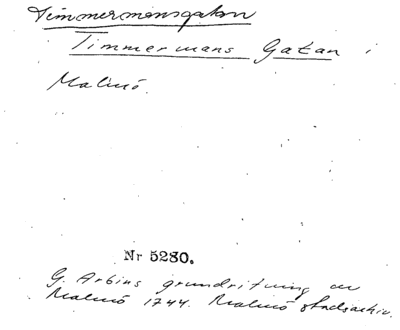 Timmermansgatan
Timmermans Gatan i
Malmö.
Nr 5280.
G. Arbins grundritning av
Malmö 1744. Malmö stadsarkiv.